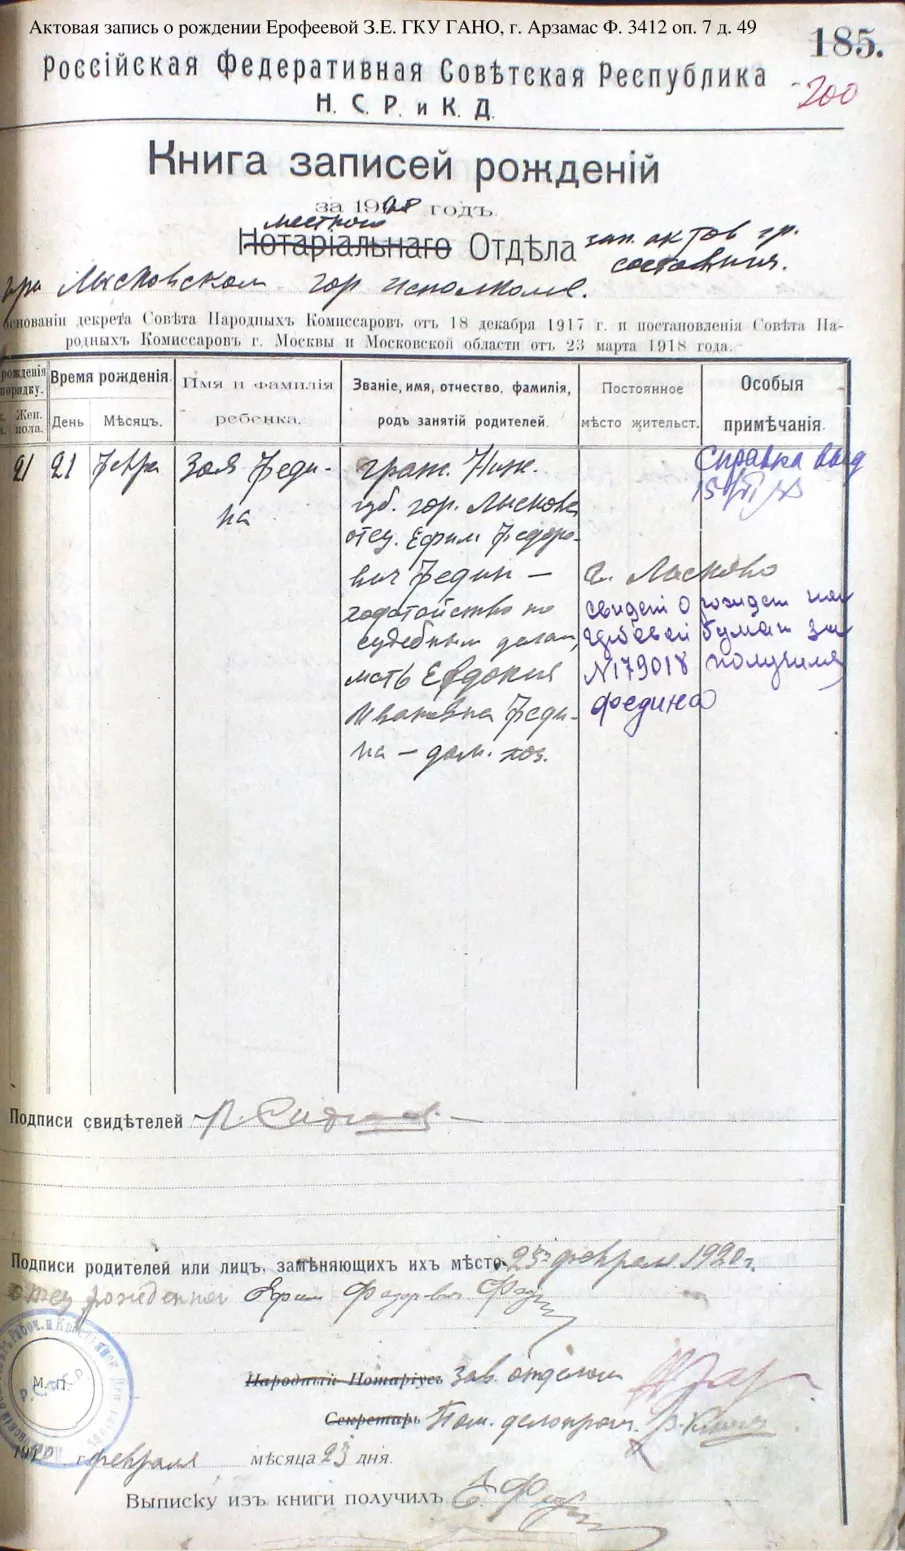 Актовая запись о рождении Ерофеевой З.Е. ГКУ ГАНО, г. Арзамас Ф. 3412 оп. 7 д. 49
185.
200
Россійская Федеративная Совѣтская Республика
Н. С. Р. и К. Д.
Книга записей рожденій
за 1920 годъ.
местного
Нотаріальнаго Отдѣла зап. актов гр.
состояния.
при Лысковском гор исполкоме.
основаніи декрета Совѣта Народныхъ Комиссаровъ отъ 18 декабря 1917 г. и постановленія Совѣта На-
родныхъ Комиссаровъ г. Москвы и Московской области отъ 23 марта 1918 года.
рожденія
порядку.
Жен.
пола.
Время рожденія.
День
Мѣсяцъ.
Имя и фамилія
ребенка.
Званіе, имя, отчество, фамилія,
родъ занятій родителей.
Постоянное
мѣсто жительст.
Особыя
примѣчанія.
21
21
Февра
Зоя Феди-
на
граж. Ниж.
губ. гор. Лысково
отец. Ефим Федоро-
вич Федин —
ходатайство по
судебным делам,
мать Евдокия
Ивановна Феди-
на — дом. хоз.
г. Лысково
Справка выд
свидет о рожден на
гербовой бумаг за
N179018 получила
Федина
Подписи свидѣтелей
Подписи родителей или лицъ, замѣняющихъ ихъ мѣсто 23 февраля 1920 г.
отец рожденной Ефим Федорович
М. П.
Народный Нотаріусъ Зав. отделом
Секретарь Пом. делопроиз.
г. февраля мѣсяца 23 дня.
Выписку изъ книги получилъ